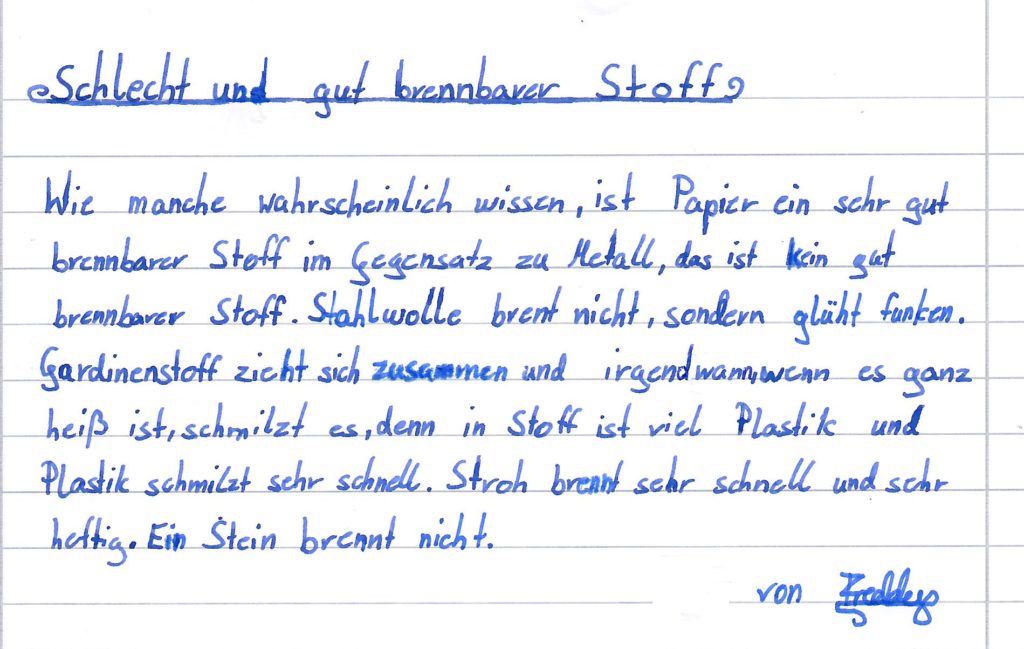 Schlecht und gut brennbarer Stoff
Wie manche wahrscheinlich wissen, ist Papier ein sehr gut
brennbarer Stoff im Gegensatz zu Metall, das ist kein gut
brennbarer Stoff. Stahlwolle brent nicht, sondern glüht funken.
Gardinenstoff zieht sich zusammen und irgendwann, wenn es ganz
heiß ist, schmilzt es, denn in Stoff ist viel Plastik und
Plastik schmilzt sehr schnell. Stroh brennt sehr schnell und sehr
heftig. Ein Stein brennt nicht.
von Freddy